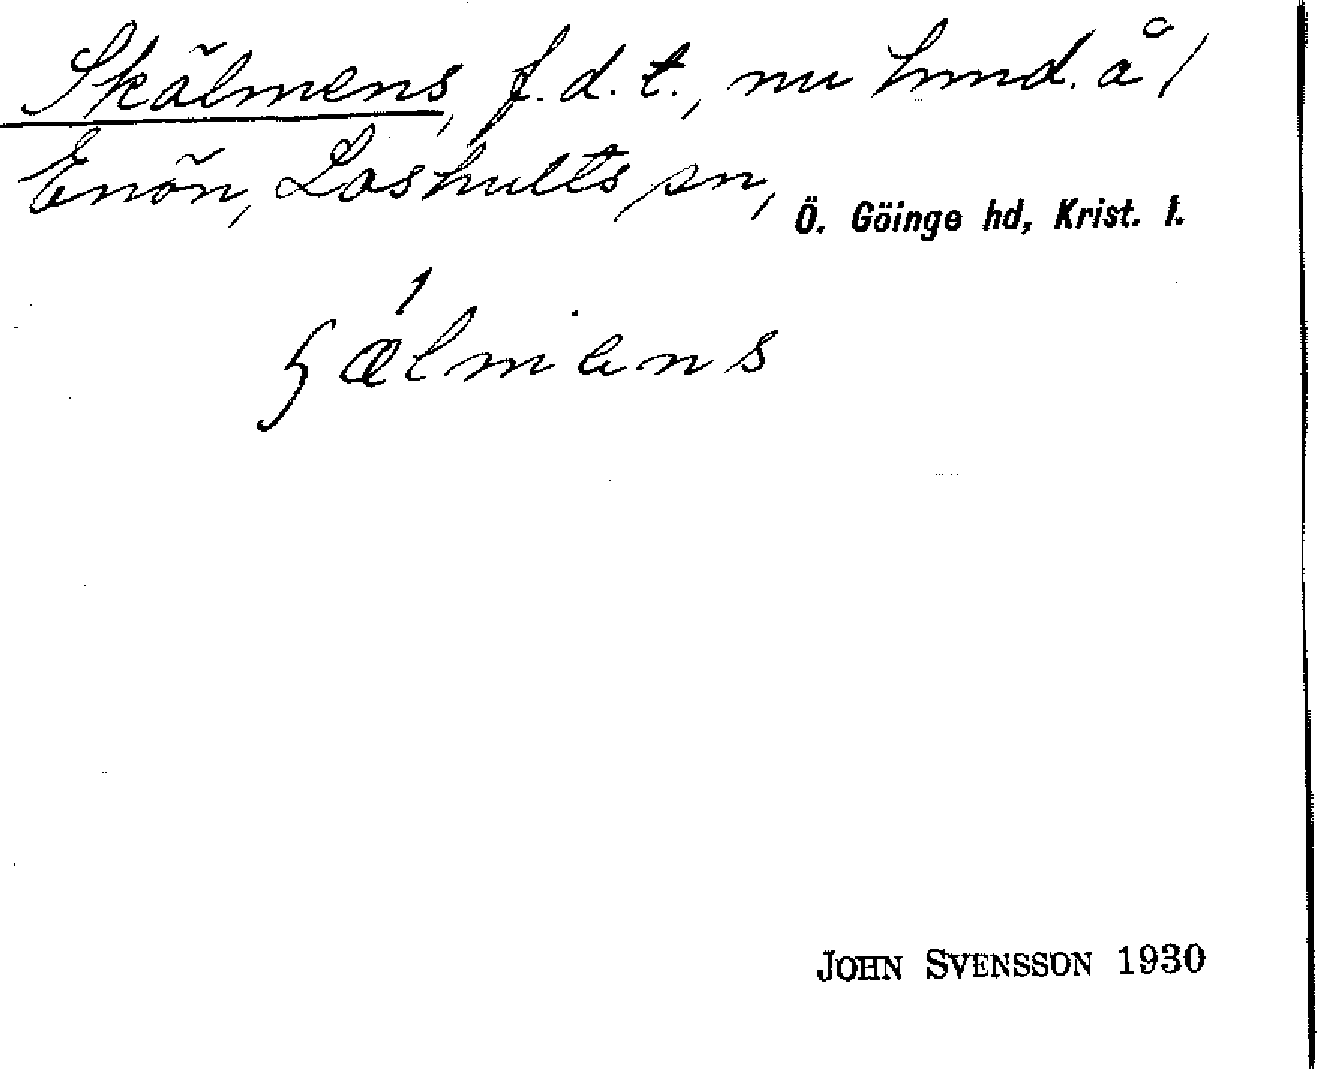 Skälmens, f.d.t., nu hmd. å /
Enön, Loshults sn, Ö. Göinge hd, Krist. l.
ʃælmens
JOHN SVENSSON 1930